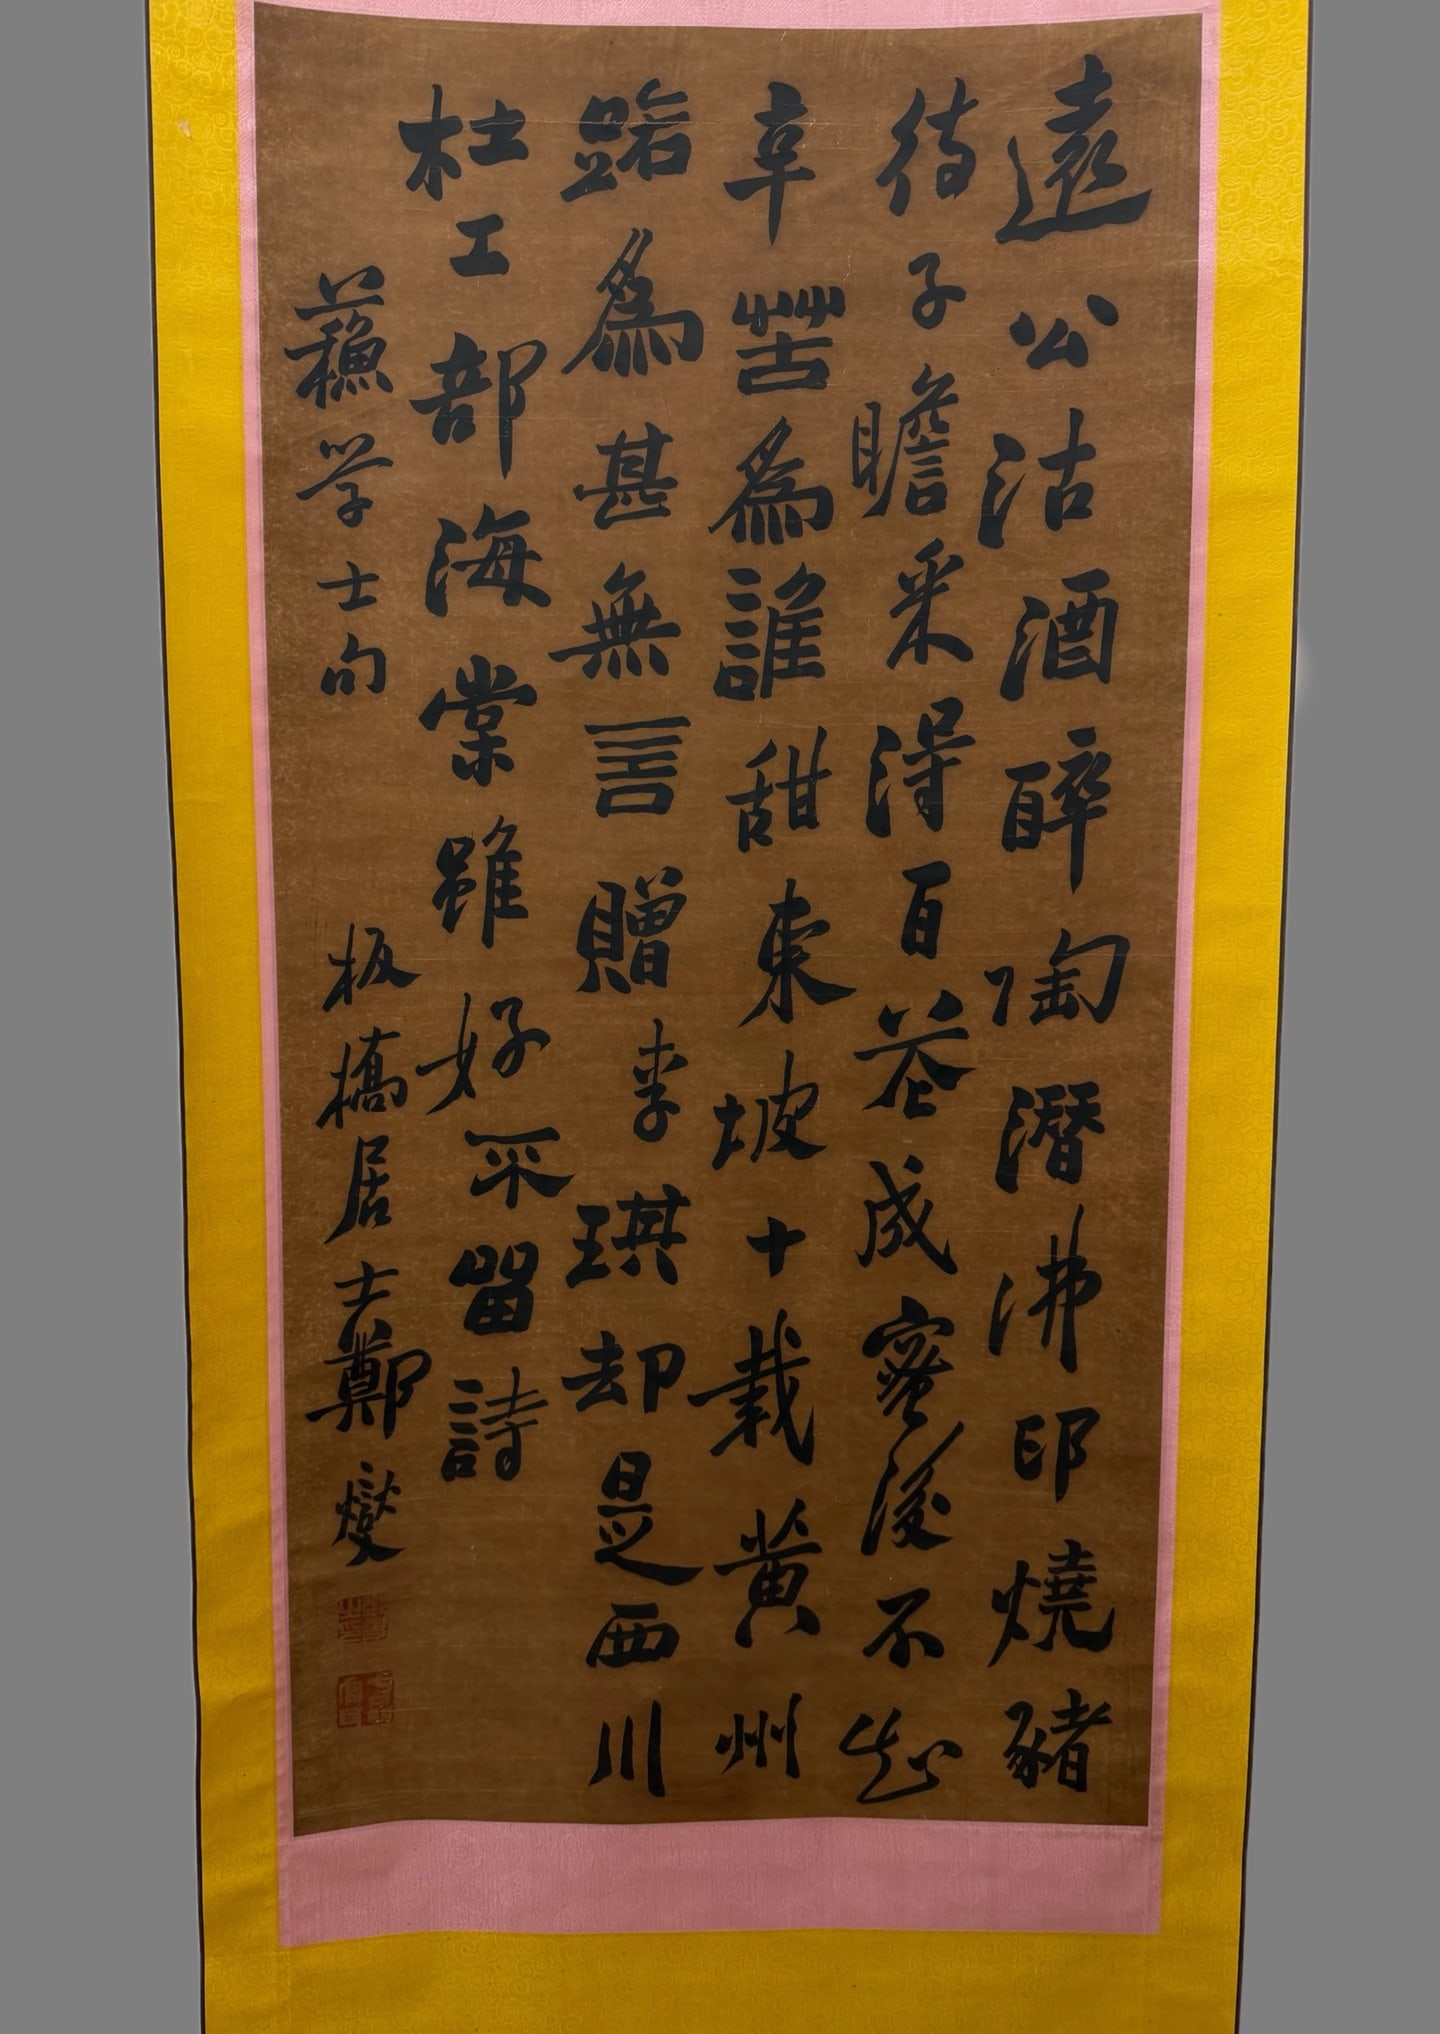 遠公沽酒醉陶潛沸印燒豬
待子瞻采得百花成蜜後不知
辛苦為誰甜東坡十載黃州
踣為甚無言贈李琪却是西川
杜工部海棠雖好不留詩
蘓学士句
板橋居士鄭燮